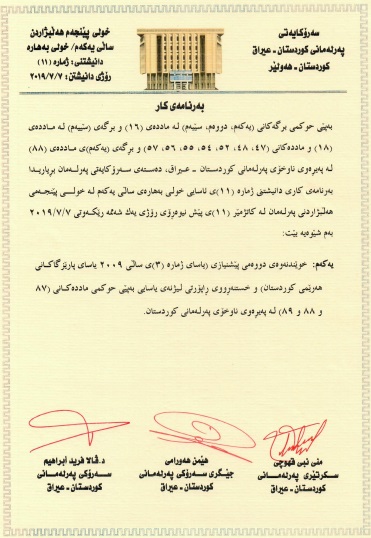 سەرۆکایەتی
پەرلەمانی کوردستان - عیراق
کوردستان - هەولێر
خولی پێنجەم هەڵبژاردن
ساڵی یەکەم/ خولی بەهارە
دانیشتنی: ژمارە (١١)
ڕۆژی دانیشتن: ٢٠١٩/٧/٧
بەرنامەی کار
بەپێی حوکمی بڕگەکانی (یەکەم، دووەم، سێیەم) لە ماددەی (١٦) و بڕگەی (سێیەم) لە ماددەی
(١٨) و ماددەکانی (٤٧، ٤٨، ٥٢، ٥٤، ٥٥، ٥٦، ٥٧) و بڕگەی (یەکەم)ی ماددەی (٨٨)
لە پەیڕەوی ناوخۆی پەرلەمانی کوردستان - عیراق، دەستەی سەرۆکایەتی پەرلەمان بڕیاریدا
بەرنامەی کاری دانیشتنی ژمارە (١١)ی ئاسایی خولی بەهارەی ساڵی یەکەم لە خولی پێنجەمی
هەڵبژاردنی پەرلەمان لە کاتژمێر (١١)ی پێش نیوەڕۆی ڕۆژی یەک شەممە ڕێکەوتی ٢٠١٩/٧/٧
بەم شێوەیە بێت:
یەکەم: خوێندنەوەی دووەمی پێشنیازی (یاسای ژمارە (٣)ی ساڵی ٢٠٠٩ یاسای پارێزگاکانی
هەرێمی کوردستان) و خستنەڕووی ڕاپۆرتی لیژنەی یاسایی بەپێی حوکمی ماددەکانی (٨٧
و ٨٨ و ٨٩) لە پەیڕەوی ناوخۆی پەرلەمانی کوردستان.
منی نبی قهوچی
سکرتێری پەرلەمانی
کوردستان - عیراق
هێمن هەورامی
جێگری سەرۆکی پەرلەمانی
کوردستان - عیراق
د. ڤالا فرید ابراهیم
سەرۆکی پەرلەمانی
کوردستان - عیراق